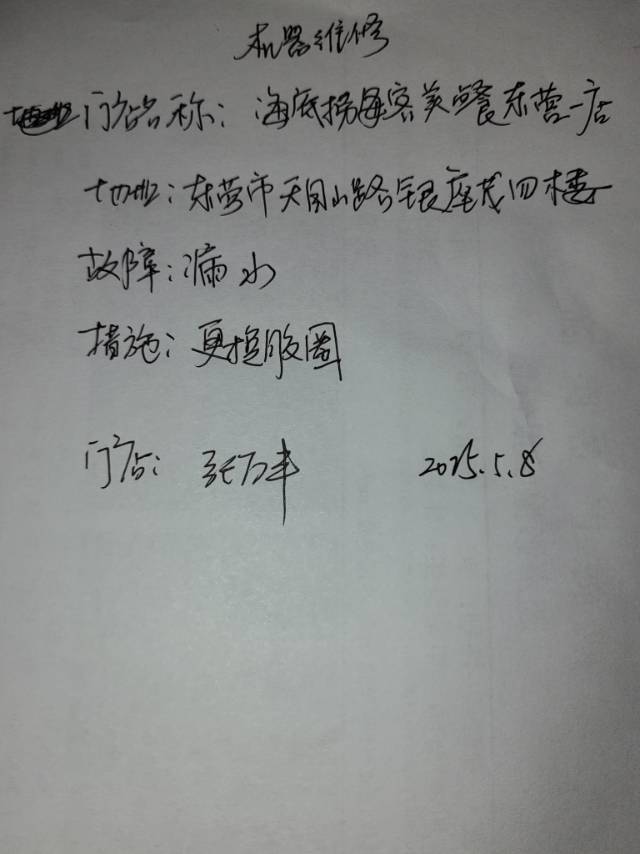 机器维修
门店名称：海底捞海客美餐东营一店
地址：东营市天目山路银座茂四楼
故障：漏水
措施：更换胶圈
门店：张万丰 2025.5.8